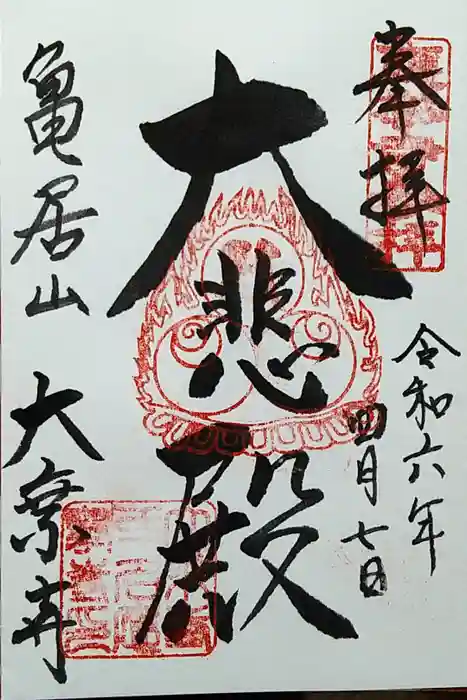 奉拝
令和六年
四月七日
大悲殿
亀居山
大乘寺